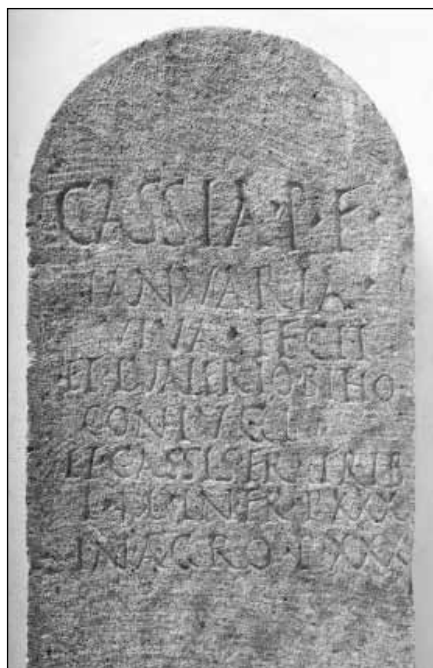 CASSIA · P · F ·
IANVARIA ·
VIVA · FECIT
ET · L · VALERIO
CONIVGI
ET CASSIS
IN · FR · LXXX
IN AGRO · LXXX